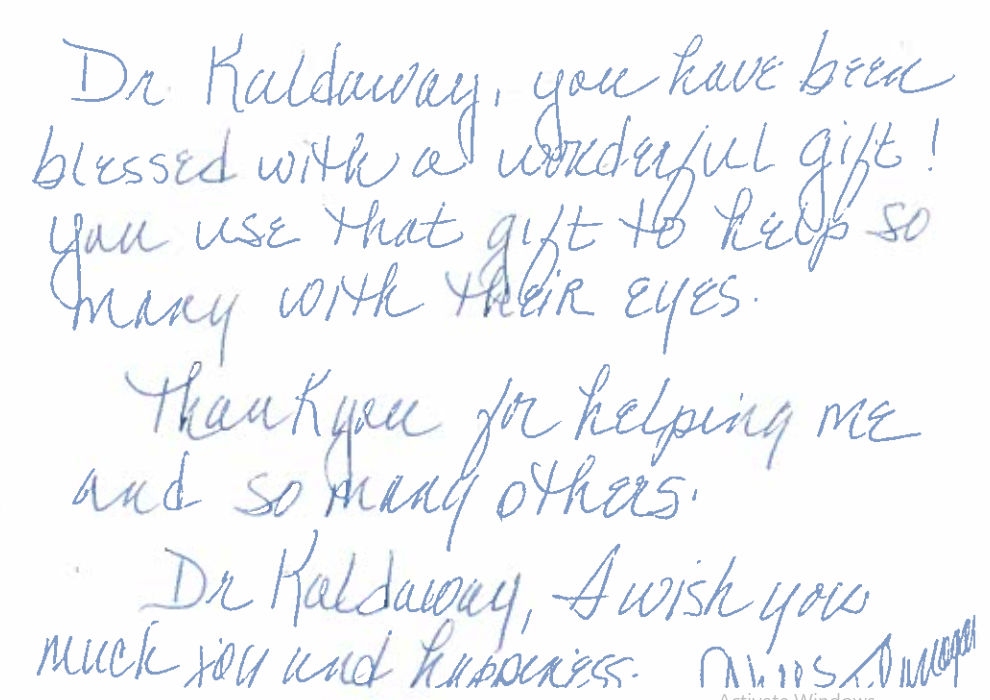 Dr Kaldaway, you have been
blessed with a wonderful gift!
you use that gift to help so
many with their eyes.
Thank you for helping me
and so many others.
Dr Kaldaway, I wish you
much joy and happiness.
Activate Windows